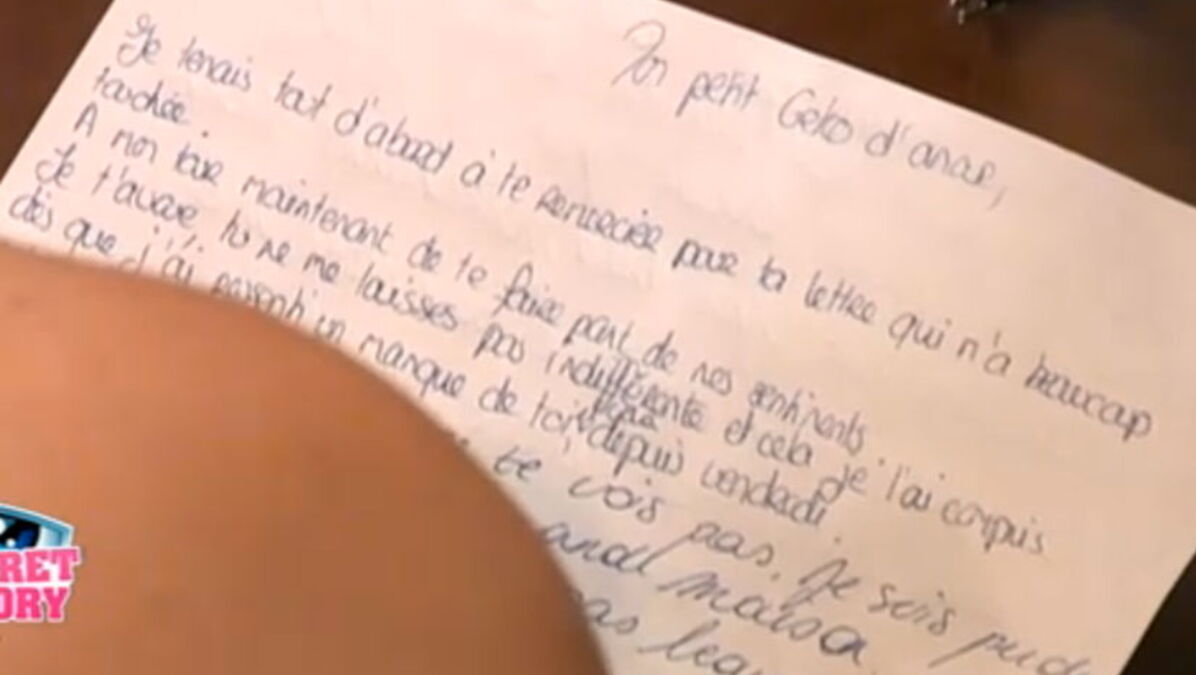 Mon petit Geko d'amour,
Je tenais tout d'abord à te remercier pour ta lettre qui m'a beaucoup
touchée.
A mon tour maintenant de te faire part de mes sentiments.
Je t'avoue tu ne me laisses pas indifférente et cela je l'ai compris
dès que j'ai ressenti un manque de toi, depuis vendredi
te vois pas, je suis
and maison
pas
RET
ORY